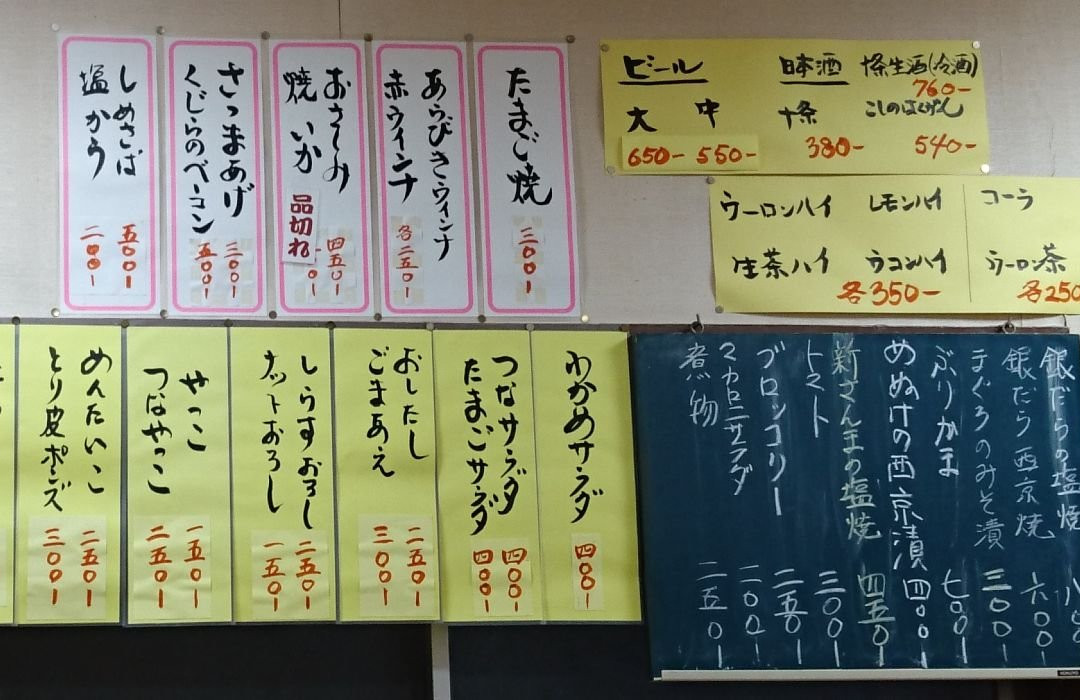 たまご焼
三〇〇ー
あらびきウィンナ
赤ウインナ
各二五〇ー
おさしみ
四五〇ー
焼いか
品切れ
さつまあげ
三〇〇ー
くじらのベーコン
五〇〇ー
しめさば
五〇〇ー
塩から
二〇〇ー
ビール
大 中
650- 550-
日本酒
十条
380-
十条生酒(冷酒)
760-
こしのはくげん
540-
ウーロンハイ レモンハイ
生茶ハイ ウコンハイ
各350-
コーラ
ウーロン茶
各250
わかめサラダ
四〇〇ー
つなサラダ
四〇〇ー
たまごサラダ
四〇〇ー
おしたし
二五〇ー
ごまあえ
三〇〇ー
しらすおろし
二五〇ー
ナットおろし
一五〇ー
やっこ
一五〇ー
つなやっこ
二五〇ー
めんたいこ
二五〇ー
とり皮ポンズ
三〇〇ー
銀だらの塩焼 八〇〇
銀だら西京焼 六〇〇ー
まぐろのみそ漬 三〇〇ー
ぶりかま 七〇〇ー
めぬけの西京漬 四〇〇ー
新さんまの塩焼 四五〇ー
トマト 三〇〇ー
ブロッコリー 二五〇ー
マカロニサラダ 二〇〇ー
煮物 二五〇ー